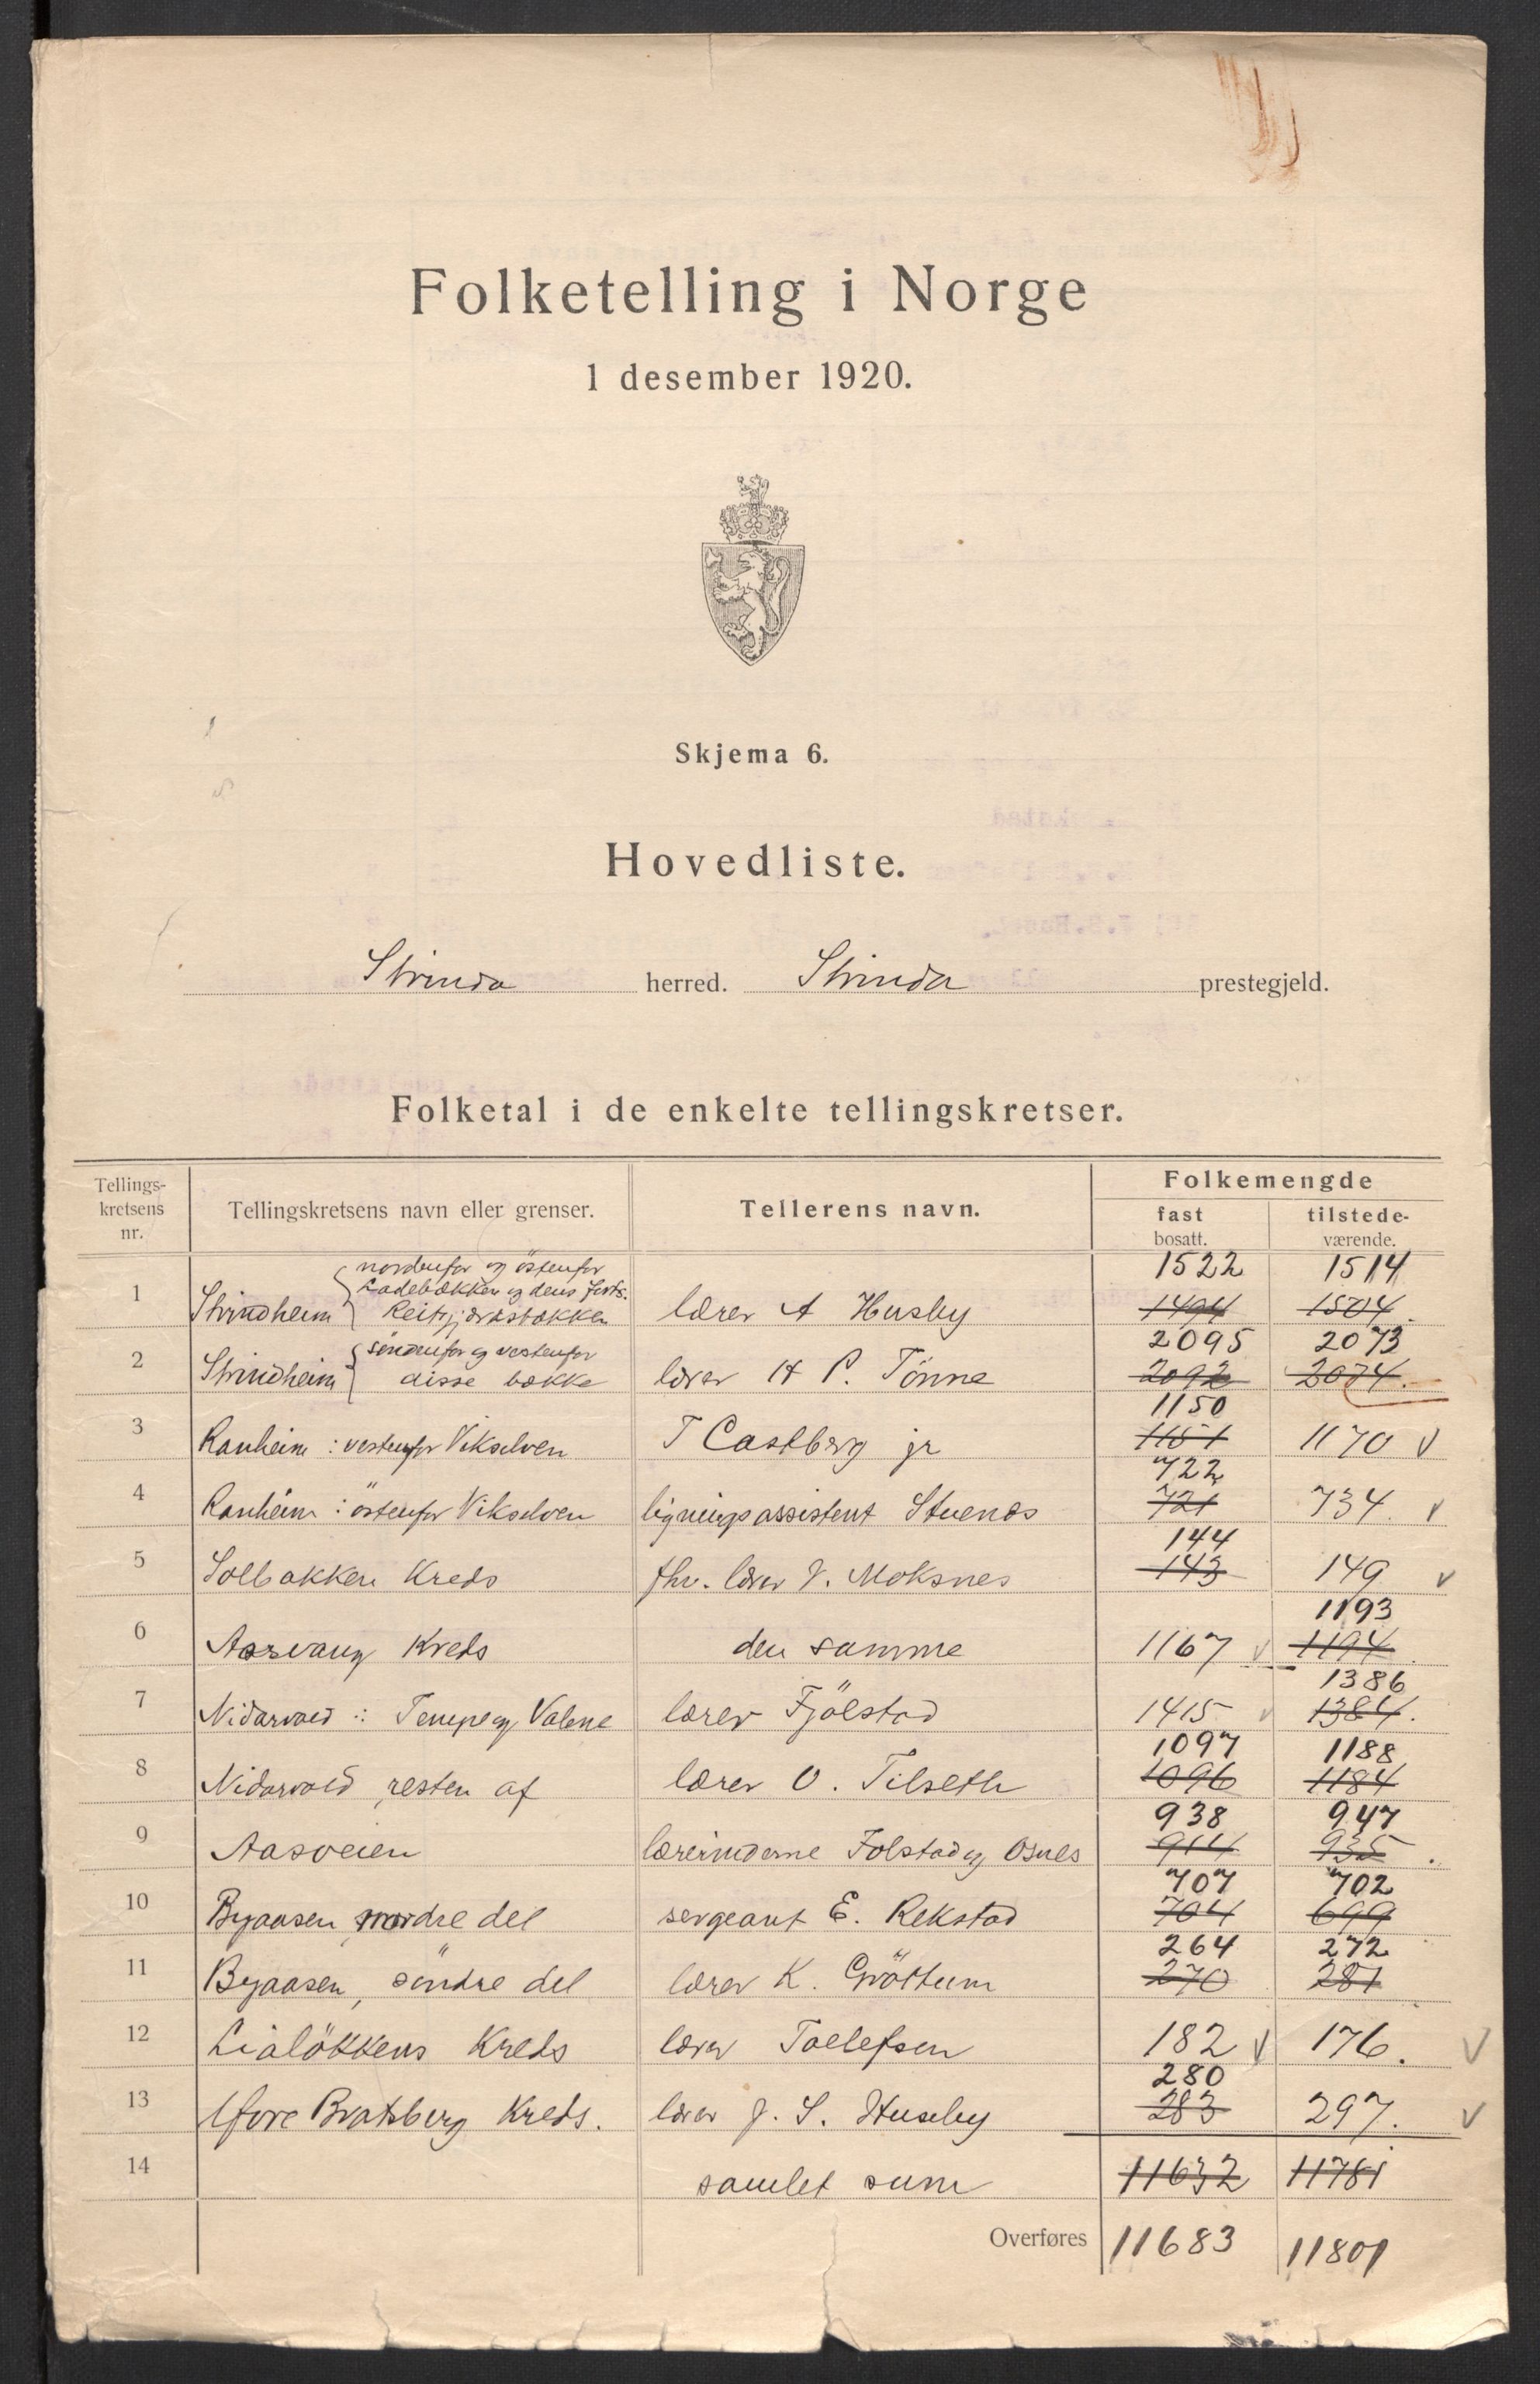 Folketelling i Norge
1 desember 1920.
Skjema 6.
Hovedliste.
Strinda herred. Strinda prestegjeld.
Folketal i de enkelte tellingskretser.
Tellings-kretsens nr. Tellingskretsens navn eller grenser. Tellerens navn. Folkemengde
fast bosatt. tilstede-værende.
nordenfor og östenfor 1522 1514
Ladebækken og dens forts.
1 Strindheim lærer A Husby 1494 1504
söndenfor og vestenfor 2095 2073
2 Strindheim disse bække lærer H P. Tönne 2092 2074.
1150
3 Ranheim : vestenfor Vikselven T Castberg jr 1151 1170 v
722
4 Ranheim : östenfor Vikselven ligningsassistent 721 734. v
144
5 Solbakken Kreds fhv. lærer J. Moksnes 143 149 v
1193
6 Asvang Kreds den samme 1167 v 1194.
1386
7 Nidarvold : Tempe og Valene lærer Fjölstad 1415 v 1384.
1097 1188
8 Nidarvold, resten af lærer O. Tilseth 1096 1184
938 947
9 Aasveien lærerinderne Folstad og Osnes 914 935.
707 702
10 Byaasen, nordre del sergeant E. Rekstad 704 699
264 272
11 Byaasen, söndre del lærer K. Gröttum 270 281
12 Lialökkens Kreds lærer Tollefsen 182 v 176. v
280
13 Bratsberg Kreds. lærer J. S. Huseby 283 297. v
14 samlet sum 11632 11781
Overføres 11683 11801